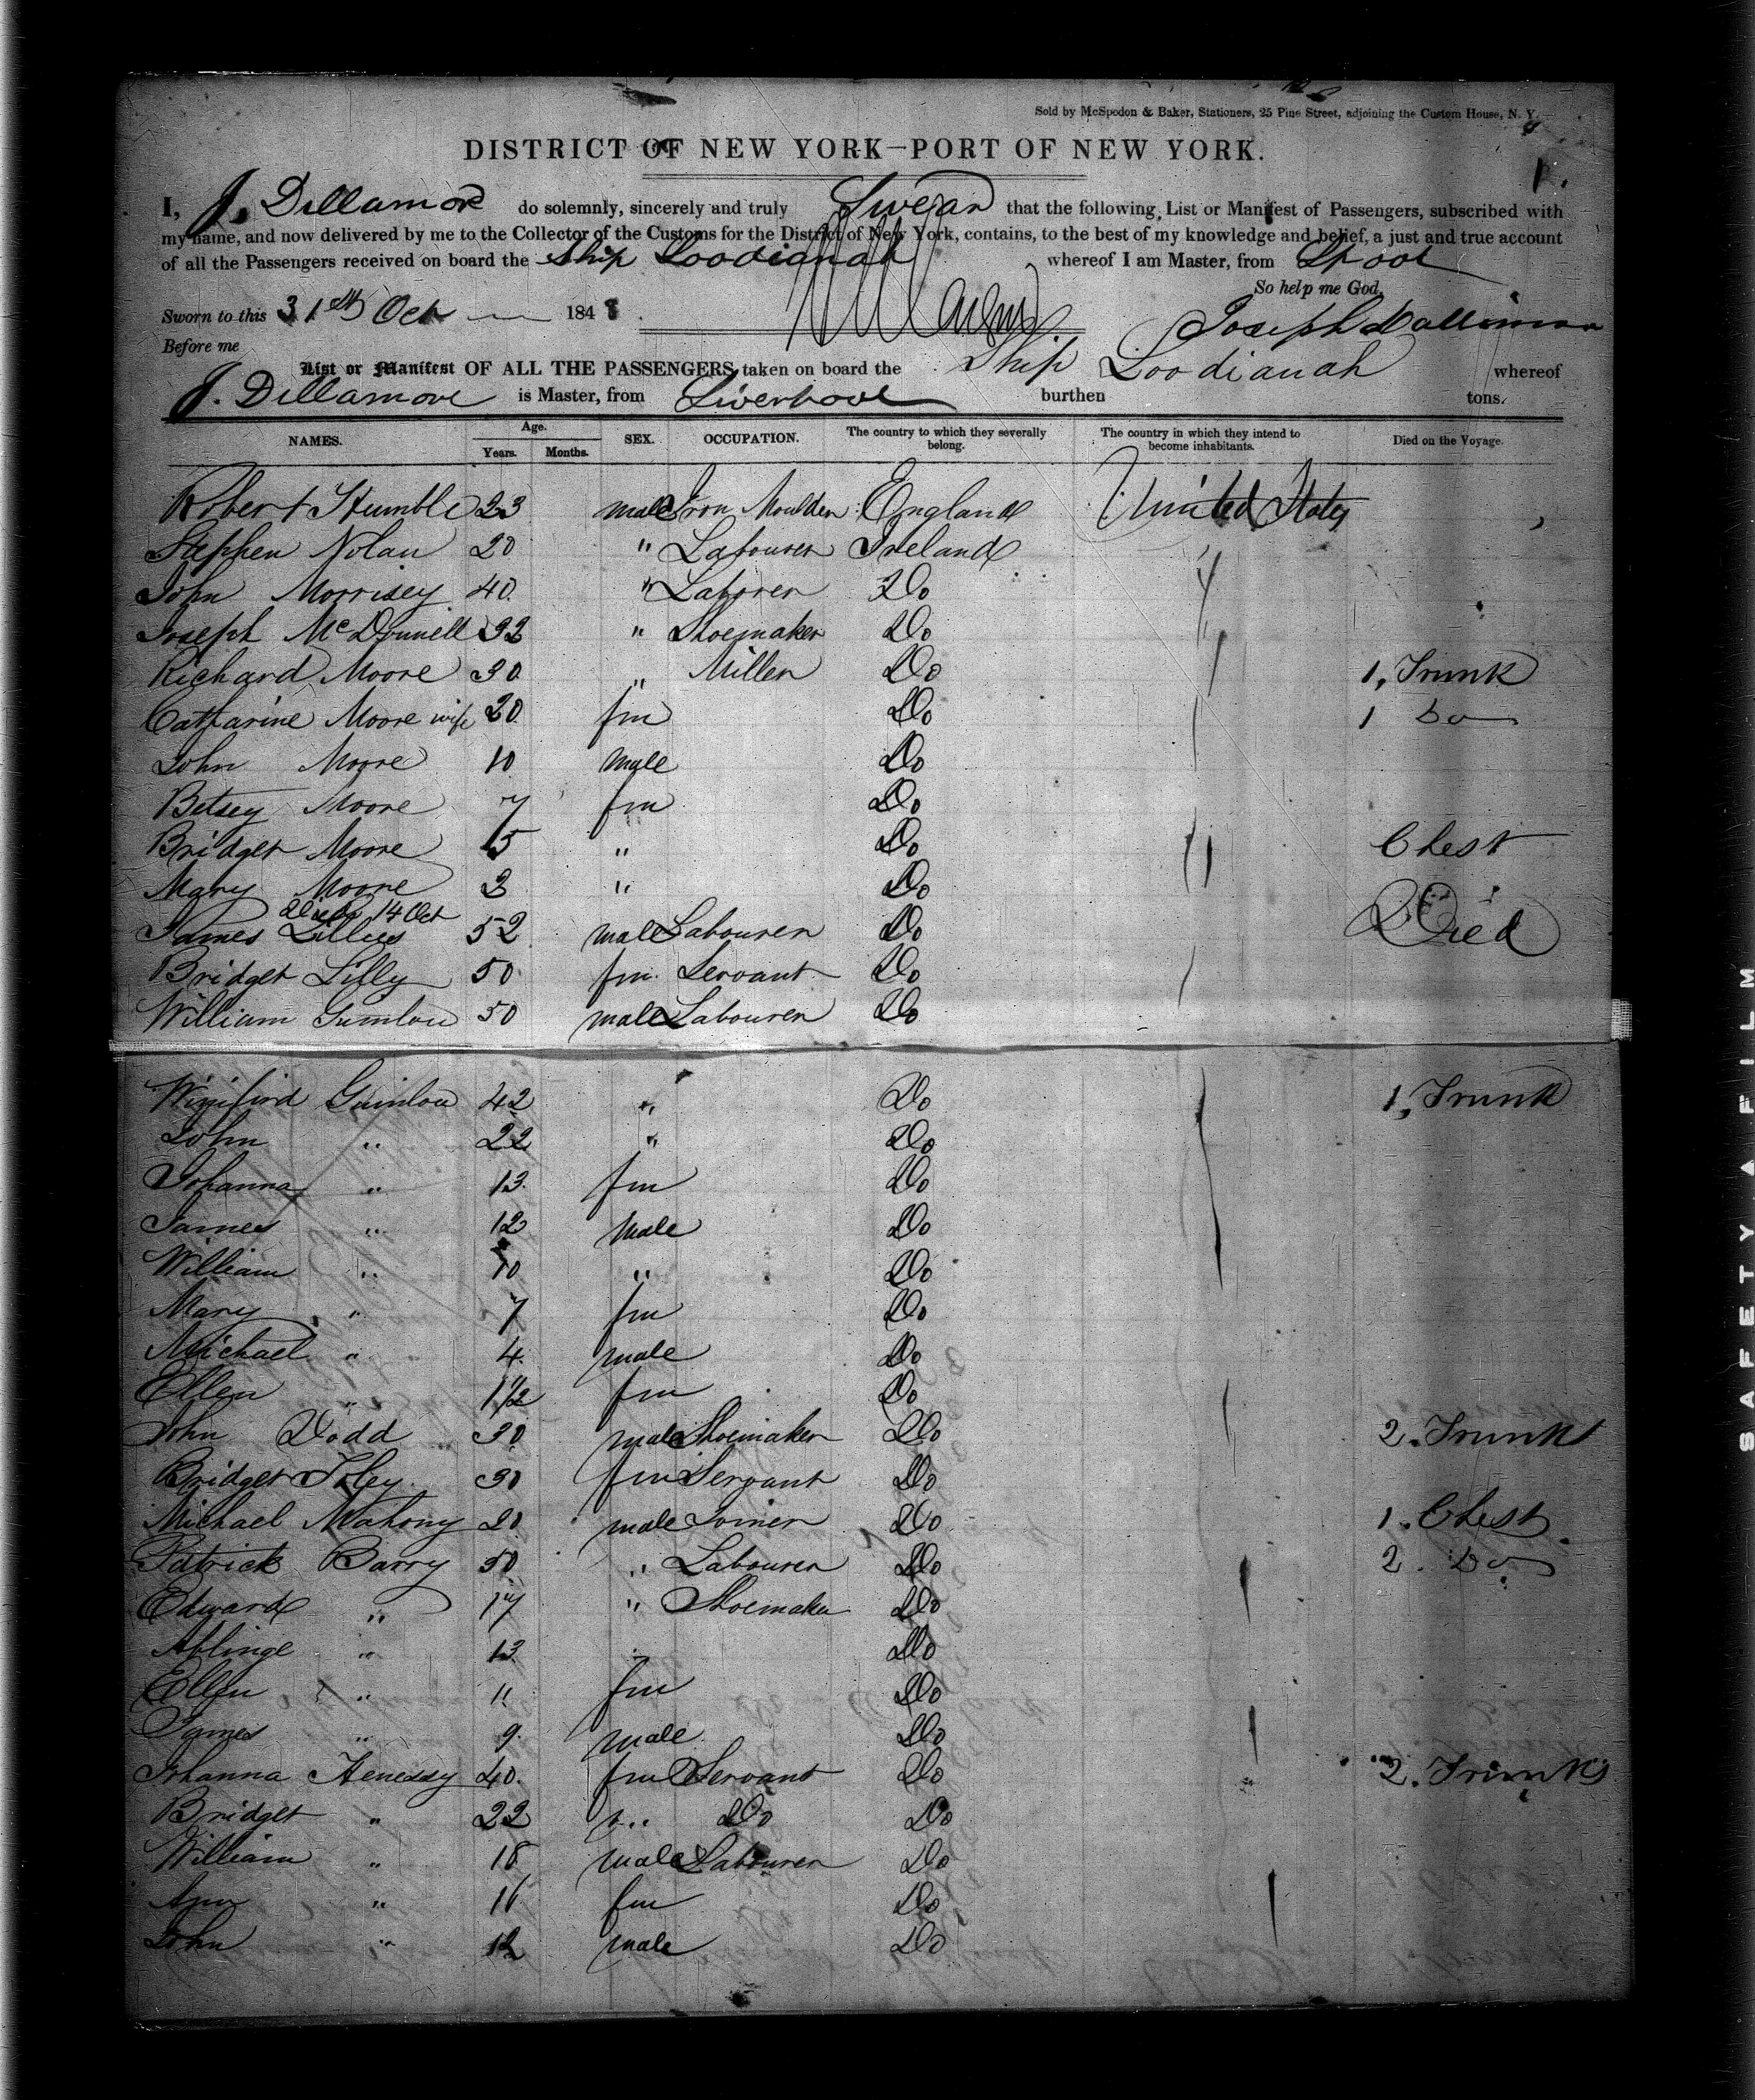 Sold by McSpedon & Baker, Stationers, 25 Pine Street, adjoining the Custom House, N. Y.
DISTRICT OF NEW YORK—PORT OF NEW YORK.
1.
I, J. Dillamore do solemnly, sincerely and truly Swear that the following List or Manifest of Passengers, subscribed with
my name, and now delivered by me to the Collector of the Customs for the District of New York, contains, to the best of my knowledge and belief, a just and true account
of all the Passengers received on board the Ship Loodianah whereof I am Master, from Lpool
So help me God,
Sworn to this 31st Oct 1848
Joseph
Before me
List or Manifest OF ALL THE PASSENGERS taken on board the Ship Loodianah whereof
J. Dillamore is Master, from Liverpool burthen tons.
NAMES. Age. Years. Months. SEX. OCCUPATION. The country to which they severally belong. The country in which they intend to become inhabitants. Died on the Voyage.
Robert Humble 23 male Iron Moulder England United States
Stephen Nolan 20 " Labourer Ireland
John Morrisey 40 " Laborer Do
Joseph McDonnell 32 " Shoemaker Do
Richard Moore 30 " Miller Do 1, Trunk
Catharine Moore wife 20 fm Do 1 Do
John Moore 10 male Do
Betsey Moore 7 fm Do
Bridget Moore 5 " Do Chest
Mary Moore 3 " Do
Died 14 Oct
James Lillies 52 male Labourer Do Died
Bridget Lilly 50 fm Servant Do
William 50 male Labourer Do
Winifird 42 " Do 1, Trunk
John " 22 " Do
Johanna " 13 fm Do
James " 12 male Do
William " 10 " Do
Mary " 7 fm Do
Michael " 4 male Do
Ellen " 1 1/2 fm Do
John Dodd 30 male Shoemaker Do 2. Trunks
Bridget Foley 30 fm Servant Do
Michael Mahony 20 male Joiner Do 1. Chest
Patrick Barry 50 " Labourer Do 2. Do
Edward " 17 " Shoemaker Do
" 13 " Do
Ellen " 11 fm Do
James " 9 male Do
Johanna Henessy 40 fm Servant Do 2. Trunks
Bridget " 22 " Do Do
William " 18 male Labourer Do
Ann " 16 fm Do
John " 12 male Do
SAFETY FILM